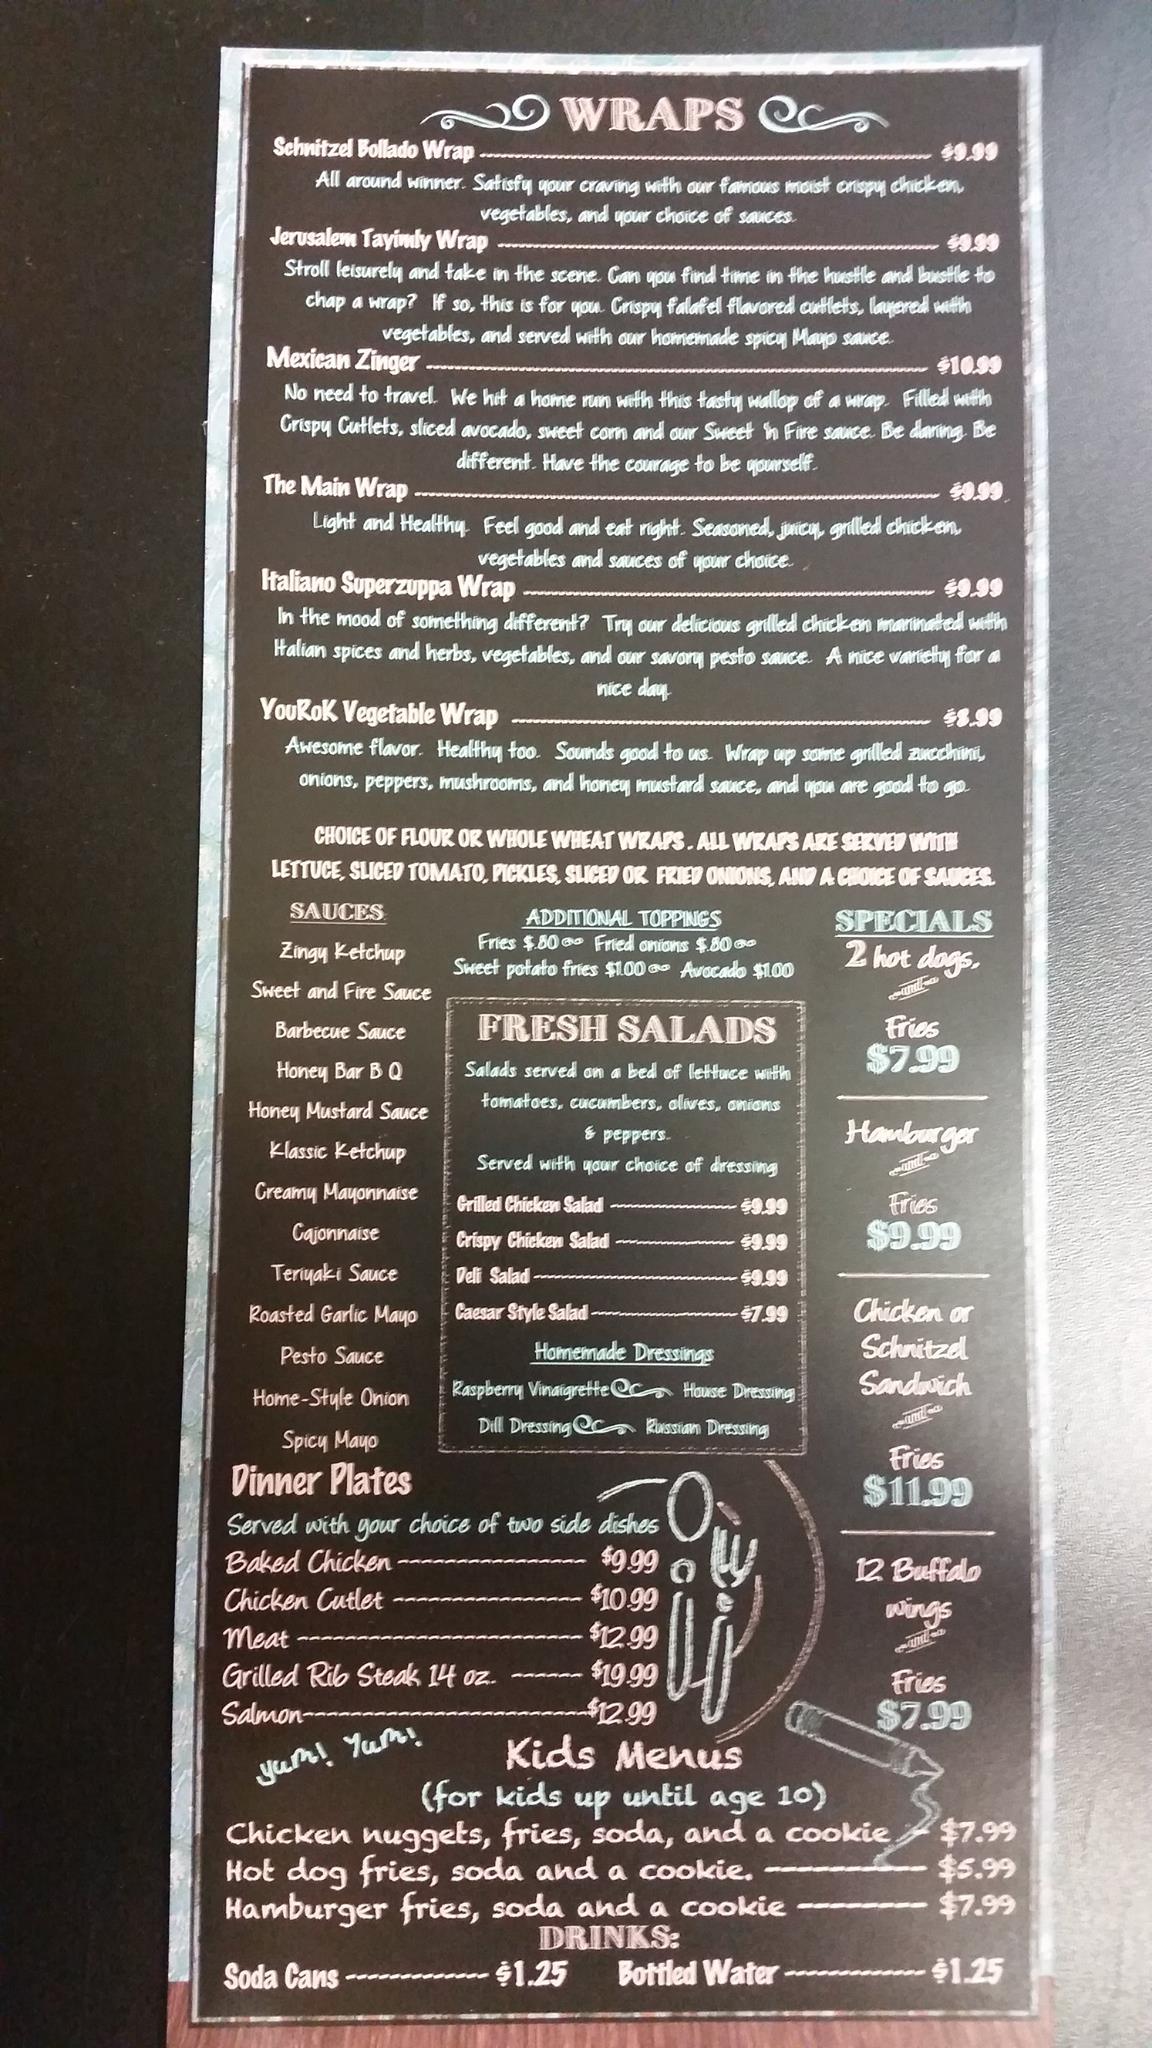 WRAPS
Schnitzel Bollado Wrap $9.99
All around winner. Satisfy your craving with our famous moist crispy chicken,
vegetables, and your choice of sauces.
Jerusalem Tayimly Wrap $9.99
Stroll leisurely and take in the scene. Can you find time in the hustle and bustle to
chap a wrap? If so, this is for you. Crispy falafel flavored cutlets, layered with
vegetables, and served with our homemade spicy Mayo sauce.
Mexican Zinger $10.99
No need to travel. We hit a home run with this tasty wallop of a wrap. Filled with
Crispy Cutlets, sliced avocado, sweet corn and our Sweet 'n Fire sauce. Be daring. Be
different. Have the courage to be yourself.
The Main Wrap $9.99
Light and Healthy. Feel good and eat right. Seasoned, juicy, grilled chicken,
vegetables and sauces of your choice.
Italiano Superzuppa Wrap $9.99
In the mood of something different? Try our delicious grilled chicken marinated with
Italian spices and herbs, vegetables, and our savory pesto sauce. A nice variety for a
nice day.
YouRoK Vegetable Wrap $8.99
Awesome flavor. Healthy too. Sounds good to us. Wrap up some grilled zucchini,
onions, peppers, mushrooms, and honey mustard sauce, and you are good to go.
CHOICE OF FLOUR OR WHOLE WHEAT WRAPS. ALL WRAPS ARE SERVED WITH
LETTUCE, SLICED TOMATO, PICKLES, SLICED OR FRIED ONIONS, AND A CHOICE OF SAUCES.
SAUCES
Zingy Ketchup
Sweet and Fire Sauce
Barbecue Sauce
Honey Bar B Q
Honey Mustard Sauce
Klassic Ketchup
Creamy Mayonnaise
Cajonnaise
Teriyaki Sauce
Roasted Garlic Mayo
Pesto Sauce
Home-Style Onion
Spicy Mayo
ADDITIONAL TOPPINGS
Fries $.80 Fried onions $.80
Sweet potato fries $1.00 Avocado $1.00
FRESH SALADS
Salads served on a bed of lettuce with
tomatoes, cucumbers, olives, onions
& peppers.
Served with your choice of dressing
Grilled Chicken Salad $9.99
Crispy Chicken Salad $9.99
Deli Salad $9.99
Caesar Style Salad $7.99
Homemade Dressings
Raspberry Vinaigrette House Dressing
Dill Dressing Russian Dressing
SPECIALS
2 hot dogs,
and
Fries
$7.99
Hamburger
and
Fries
$9.99
Chicken or
Schnitzel
Sandwich
and
Fries
$11.99
12 Buffalo
wings
and
Fries
$7.99
Dinner Plates
Served with your choice of two side dishes
Baked Chicken $9.99
Chicken Cutlet $10.99
Meat $12.99
Grilled Rib Steak 14 oz. $19.99
Salmon $12.99
Yum! Yum!
Kids Menus
(for kids up until age 10)
Chicken nuggets, fries, soda, and a cookie $7.99
Hot dog fries, soda and a cookie. $5.99
Hamburger fries, soda and a cookie $7.99
DRINKS:
Soda Cans $1.25 Bottled Water $1.25